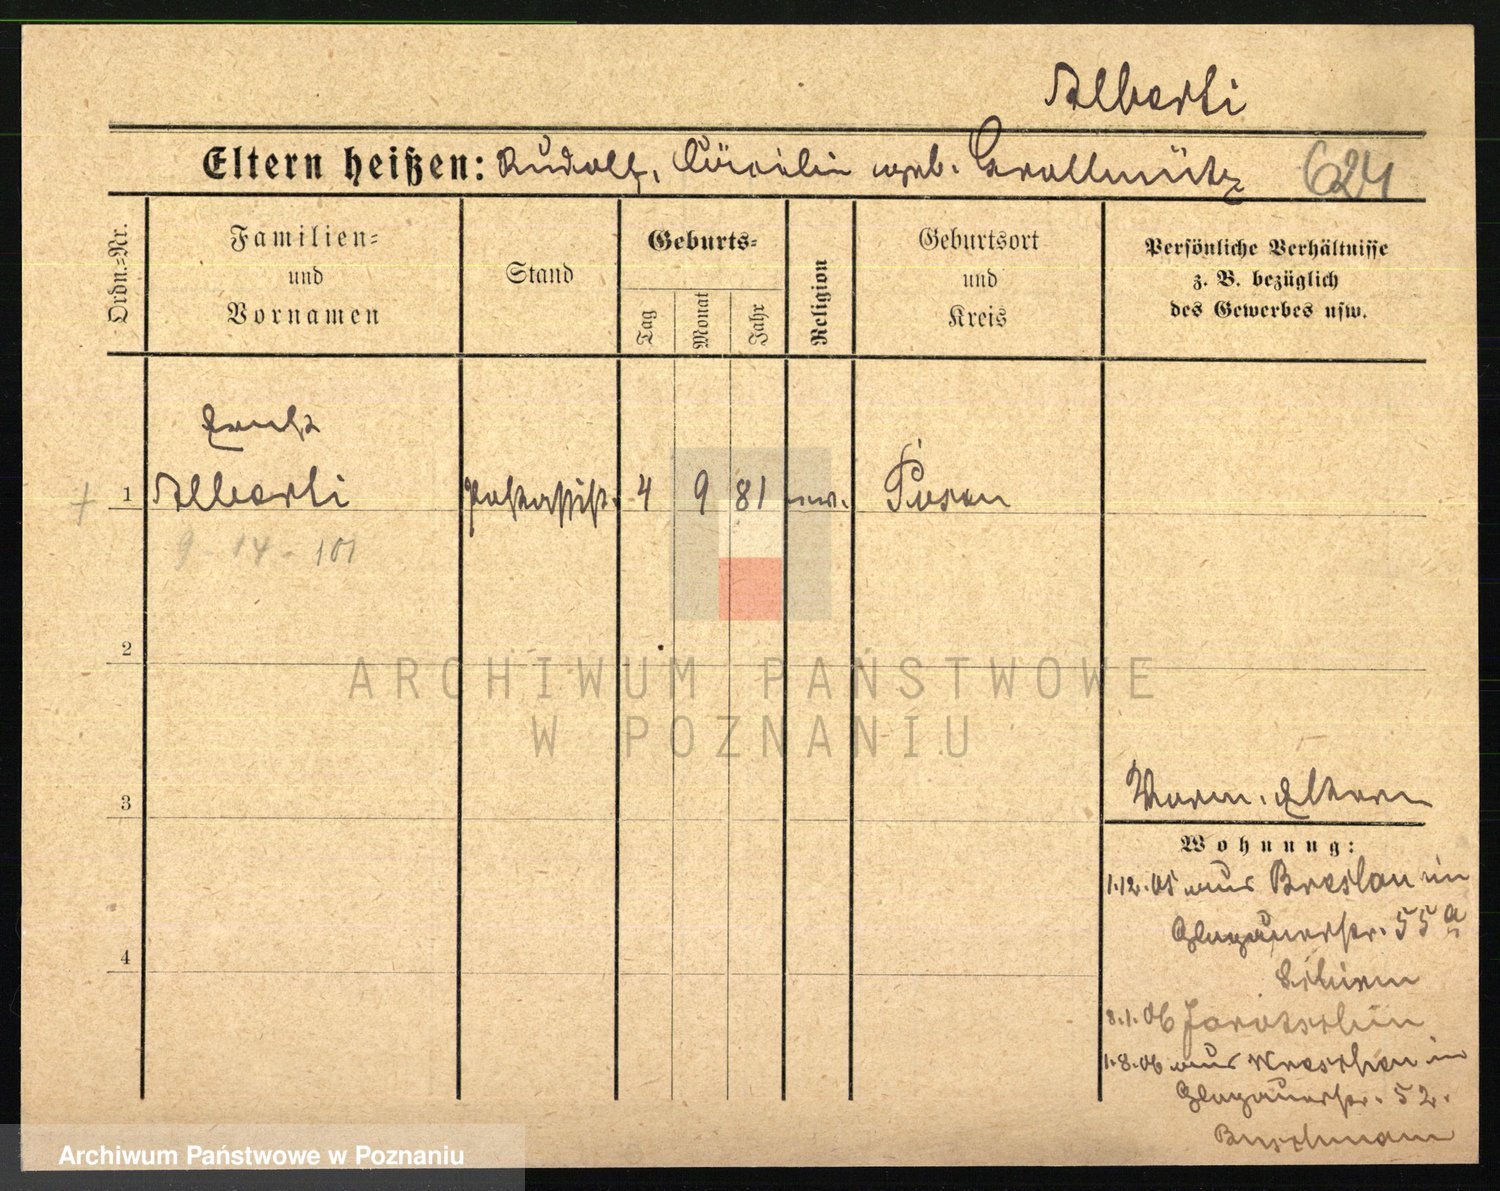 Alberti
Eltern heißen: Rudolf, Cäcilie geb. Grollmütz 624
Ordn.-Nr.
Familien-
und
Vornamen
Stand
Geburts-
Tag
Monat
Jahr
Religion
Geburtsort
und
Kreis
Persönliche Verhältnisse
z. B. bezüglich
des Gewerbes usw.
Ernst
1 Alberti Postassist. 4 9 81 ev. Posen
9-14-101
2
ARCHIWUM PAŃSTWOWE
W POZNANIU
3
Vorm. Eltern
Wohnung:
1.12.05 aus Breslau in
Glogauerstr. 55a
4
8.1.06 Jarotschin
1.8.06 aus Wreschen in
Glogauerstr. 52.
Buschmann
Archiwum Państwowe w Poznaniu